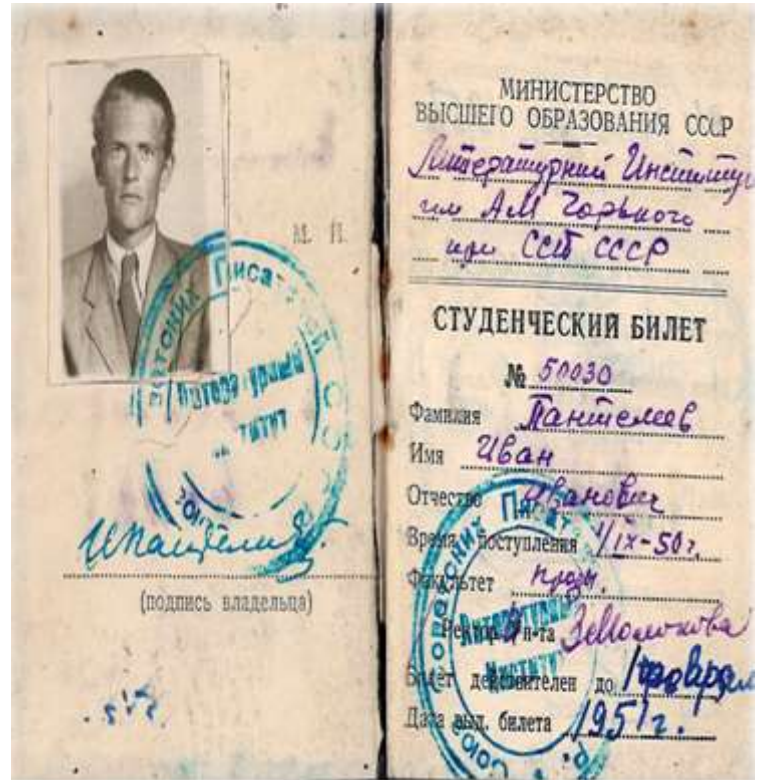 М. П.
(подпись владельца)
МИНИСТЕРСТВО
ВЫСШЕГО ОБРАЗОВАНИЯ СССР
Литературный Институт
им А М Горького
при ССП СССР
СТУДЕНЧЕСКИЙ БИЛЕТ
№ 50030
Фамилия Пантелеев
Имя Иван
Отчество Иванович
Время поступления 1/IX-50г.
Факультет прозы.
Ректор Ин-та
Билет действителен до 1 февраля
Дата выд. билета 1951г.
Литературный
Институт